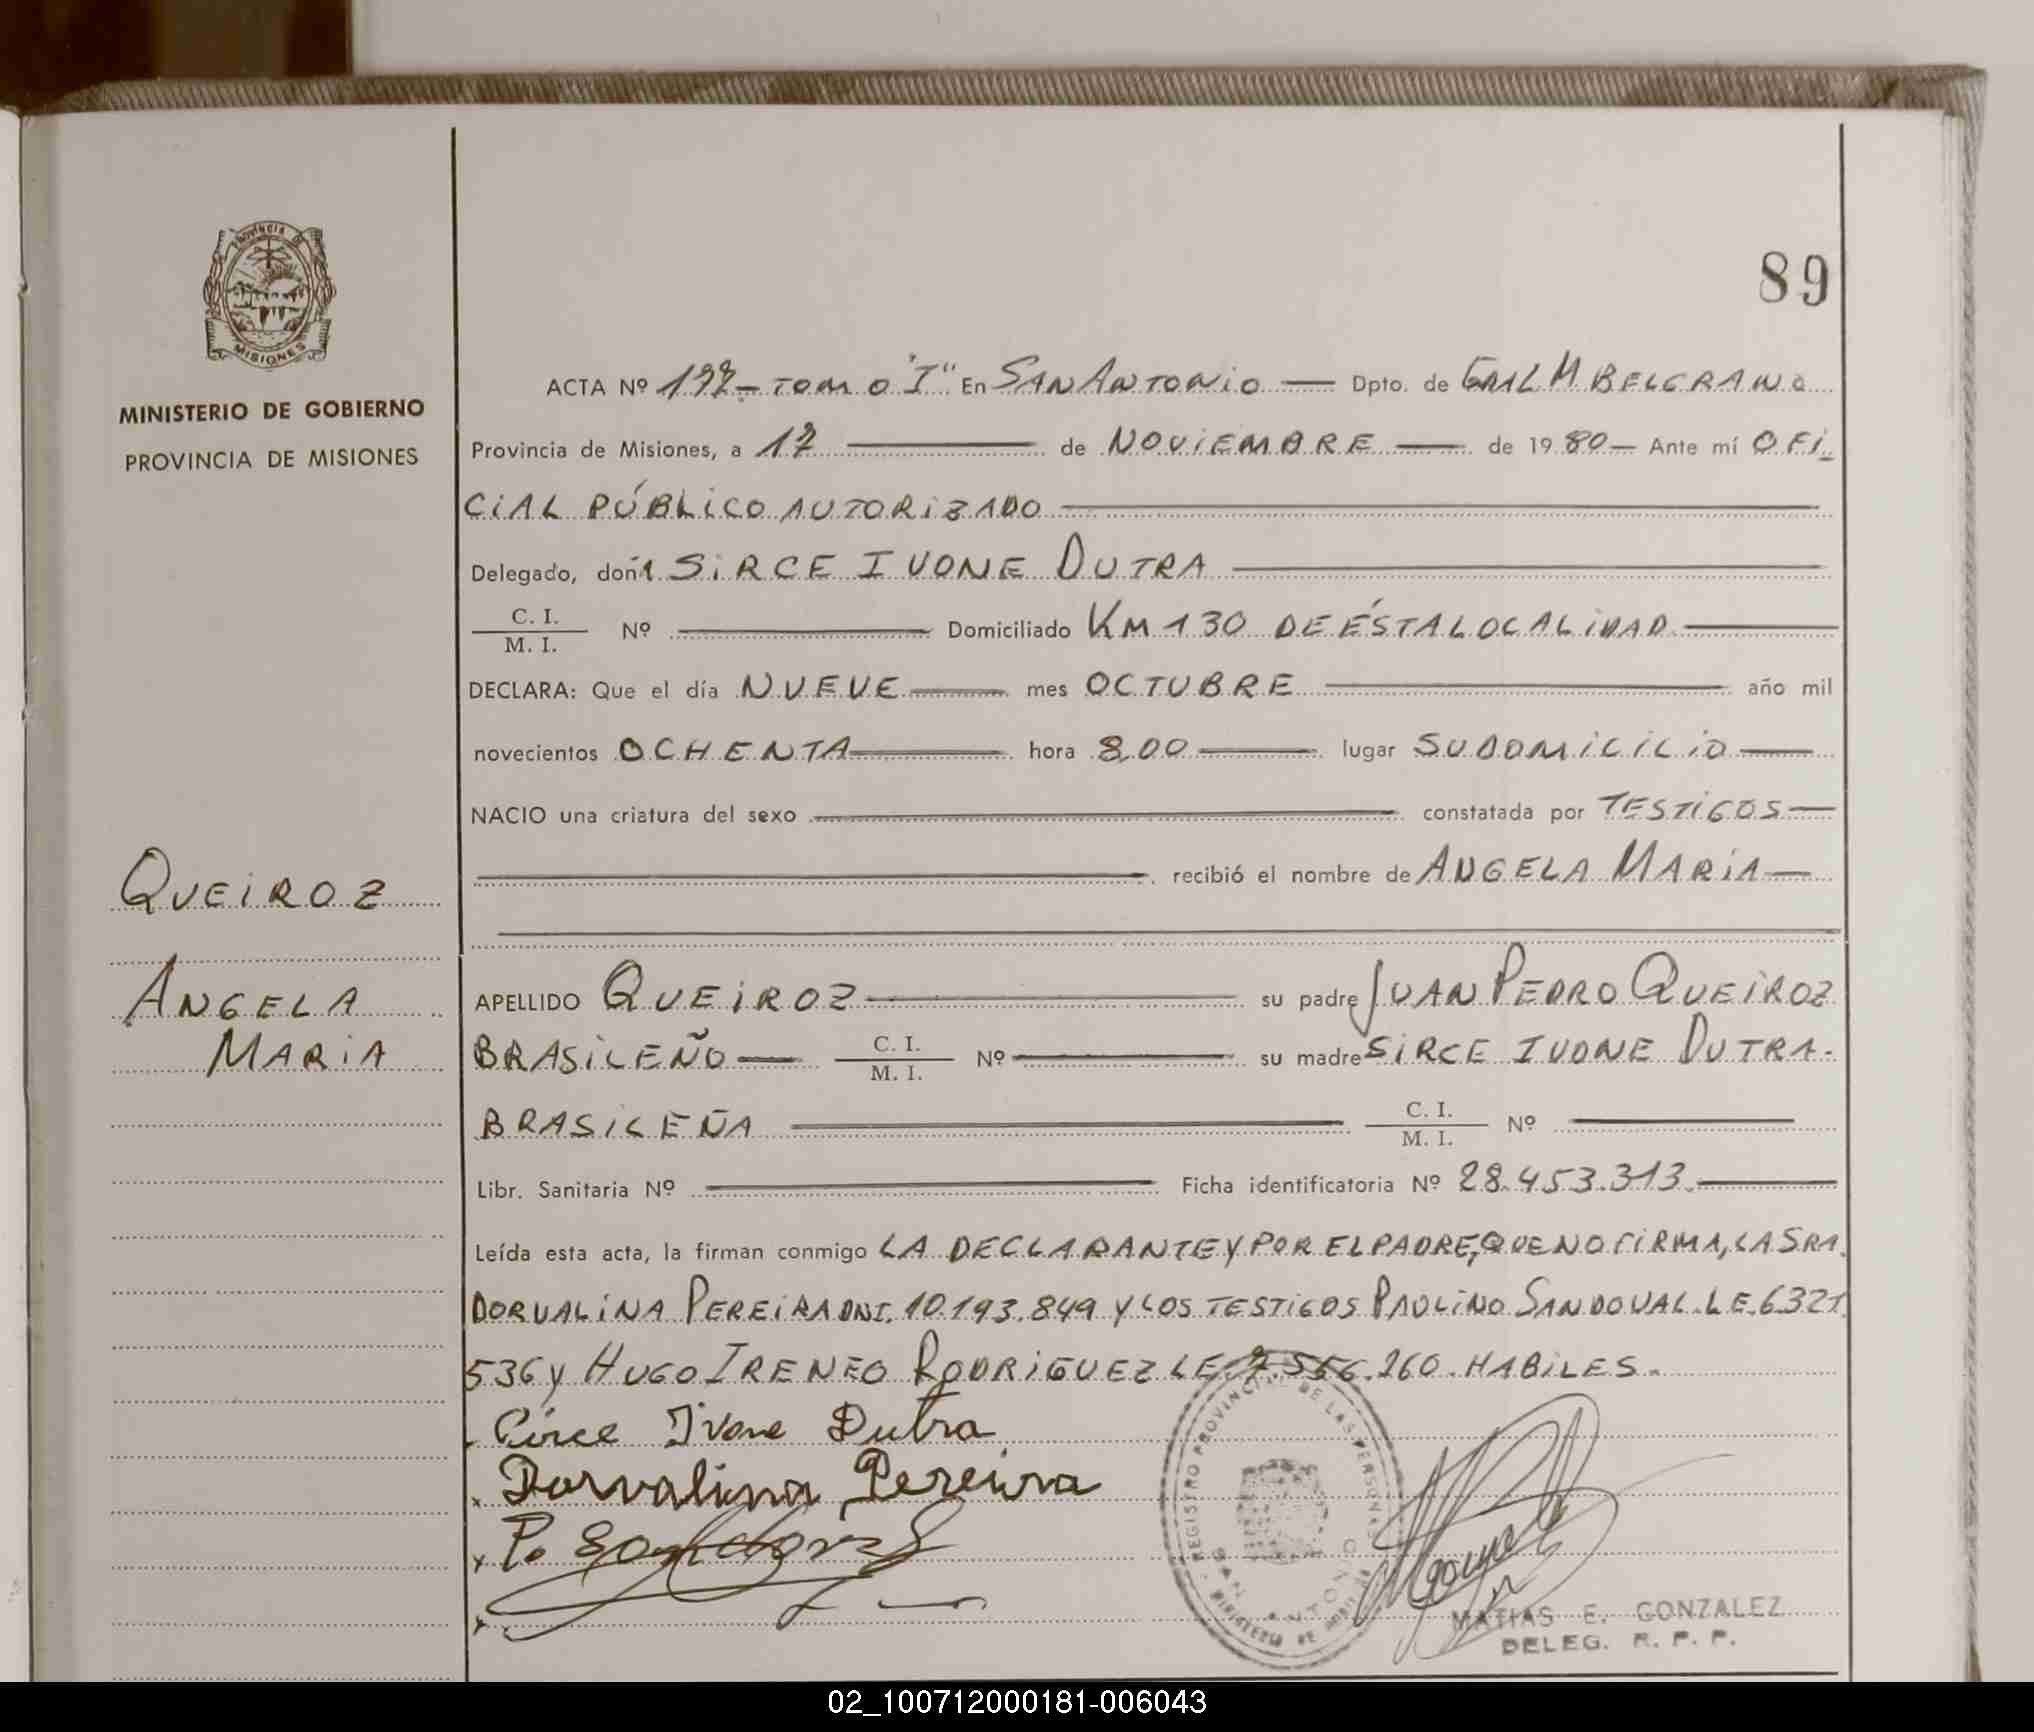 Provincia de
MISIONES
MINISTERIO DE GOBIERNO
PROVINCIA DE MISIONES
QUEIROZ
ANGELA
MARIA
89
ACTA Nº 197 - TOMO "I" En SAN ANTONIO — Dpto. de GRAL M BELGRANO
Provincia de Misiones, a 17 — de NOVIEMBRE — de 1980 — Ante mí OFI
CIAL PÚBLICO AUTORIZADO
Delegado, doña SIRCE IVONE DUTRA
C. I. / M. I. Nº — Domiciliado KM 130 DE ÉSTA LOCALIDAD
DECLARA: Que el día NUEVE — mes OCTUBRE — año mil
novecientos OCHENTA — hora 8,00 — lugar SU DOMICILIO
NACIO una criatura del sexo — constatada por TESTIGOS
— recibió el nombre de ANGELA MARIA
APELLIDO QUEIROZ — su padre JUAN PEDRO QUEIROZ
BRASILEÑO — C. I. / M. I. Nº — su madre SIRCE IVONE DUTRA.
BRASILEÑA — C. I. / M. I. Nº —
Libr. Sanitaria Nº — Ficha identificatoria Nº 28.453.313.
Leída esta acta, la firman conmigo LA DECLARANTE Y POR EL PADRE, QUE NO FIRMA, LA SRA.
DORVALINA PEREIRA DNI. 10.193.849 Y LOS TESTIGOS PAULINO SANDOVAL. L E. 6.321.
536 y HUGO IRENEO RODRIGUEZ L E. 7.556.260. HABILES.
Circe Ivone Dutra
Dorvalina Pereira
P. Sandoval
REGISTRO PROVINCIAL DE LAS PERSONAS
SAN ANTONIO
MINISTERIO DE GOBIERNO
MATIAS E. GONZALEZ
DELEG. R. P. P.
02_100712000181-006043